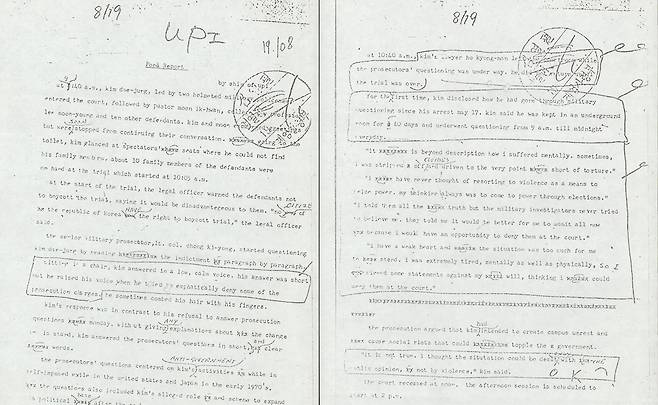 8/19
UPI
19./08
Pool Report
by shim of upi
at 9:40 a.m., kim dae-jung, led by two helmeted military
entered the court, followed by pastor moon ik-hwan,
lee moon-young and ten other defendants. kim and moon
but were stopped from continuing their conversation. going to the
toilet, kim glanced at spectators' seats where he could not find
his family members. about 10 family members of the defendants were
on hand at the trial which started at 10:05 a.m.
at the start of the trial, the legal officer warned the defendants not
to boycott the trial, saying it would be disadvantageous to them. "no citizen of
the republic of korea have the right to boycott trial," the legal officer
said.
the senior military prosecutor, lt. col. chong ki-yong, started questioning
kim dae-jung by reading the indictment paragraph by paragraph.
sitting on a chair, kim answered in a low, calm voice. his answer was short
but he raised his voice when he tried to emphatically deny some of the
prosecution charges. he sometimes combed his hair with his fingers.
kim's response was in contrast to his refusal to answer prosecution
questions monday, without giving any explanations about the change
in stand. kim answered the prosecutors' questions in short, clear
words.
the prosecutors' questions centered on kim's anti-government activities while in
self-imposed exile in the united states and japan in the early 1970's.
the questions also included kim's alleged role and scheme to expand
a political base after the
8/19
at 10:40 a.m., kim's lawyer ho kyong-man left while
the prosecutors' questioning was under way. he
the trial was over.
for the first time, kim disclosed how he had gone through military
questioning since his arrest may 17. kim said he was kept in an underground
room for 60 days and underwent questioning from 9 a.m. till midnight
everyday.
"it is beyond description how i suffered mentally. sometimes,
i was stripped of clothes and driven to the very point short of torture."
"i have never thought of resorting to violence as a means to
seize power. my thinking always was to come to power through elections."
"i told them all the truth but the military investigators never tried
to believe me. they told me it would be better for me to admit all now
because i would have an opportunity to deny them at the court."
"i have a weak heart and the situation was too much for me
to stand. i was extremely tired, mentally as well as physically. So I
signed some statements against my will, thinking i would
deny them at the court."
the prosecution argued that kim had intended to create campus unrest and
cause social riots that could topple the government.
"it is not true. i thought the situation could be dealt with
public opinion, not by violence," kim said.
OK
the court recessed at noon. the afternoon session is scheduled to
start at 2 p.m.